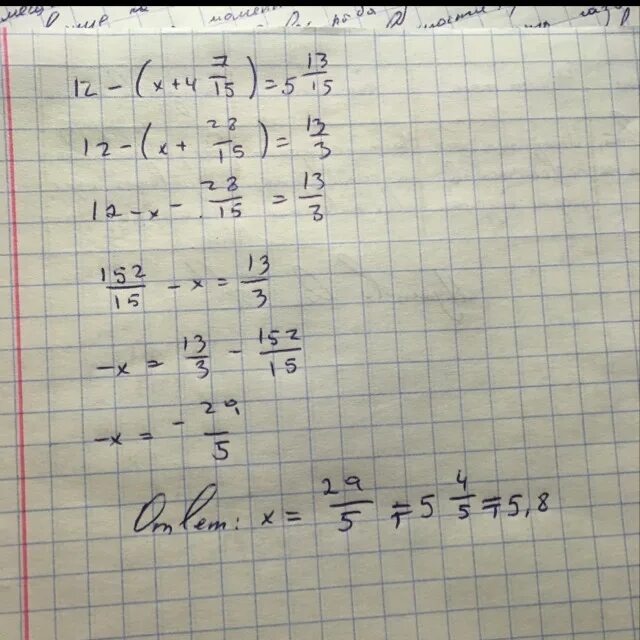 12 - (x + 4 7/15) = 5 13/15
12 - (x + 28/15) = 13/3
12 - x - 28/15 = 13/3
152/15 - x = 13/3
-x = 13/3 - 152/15
-x = - 29/5
Ответ: x = 29/5 = 5 4/5 = 5,8